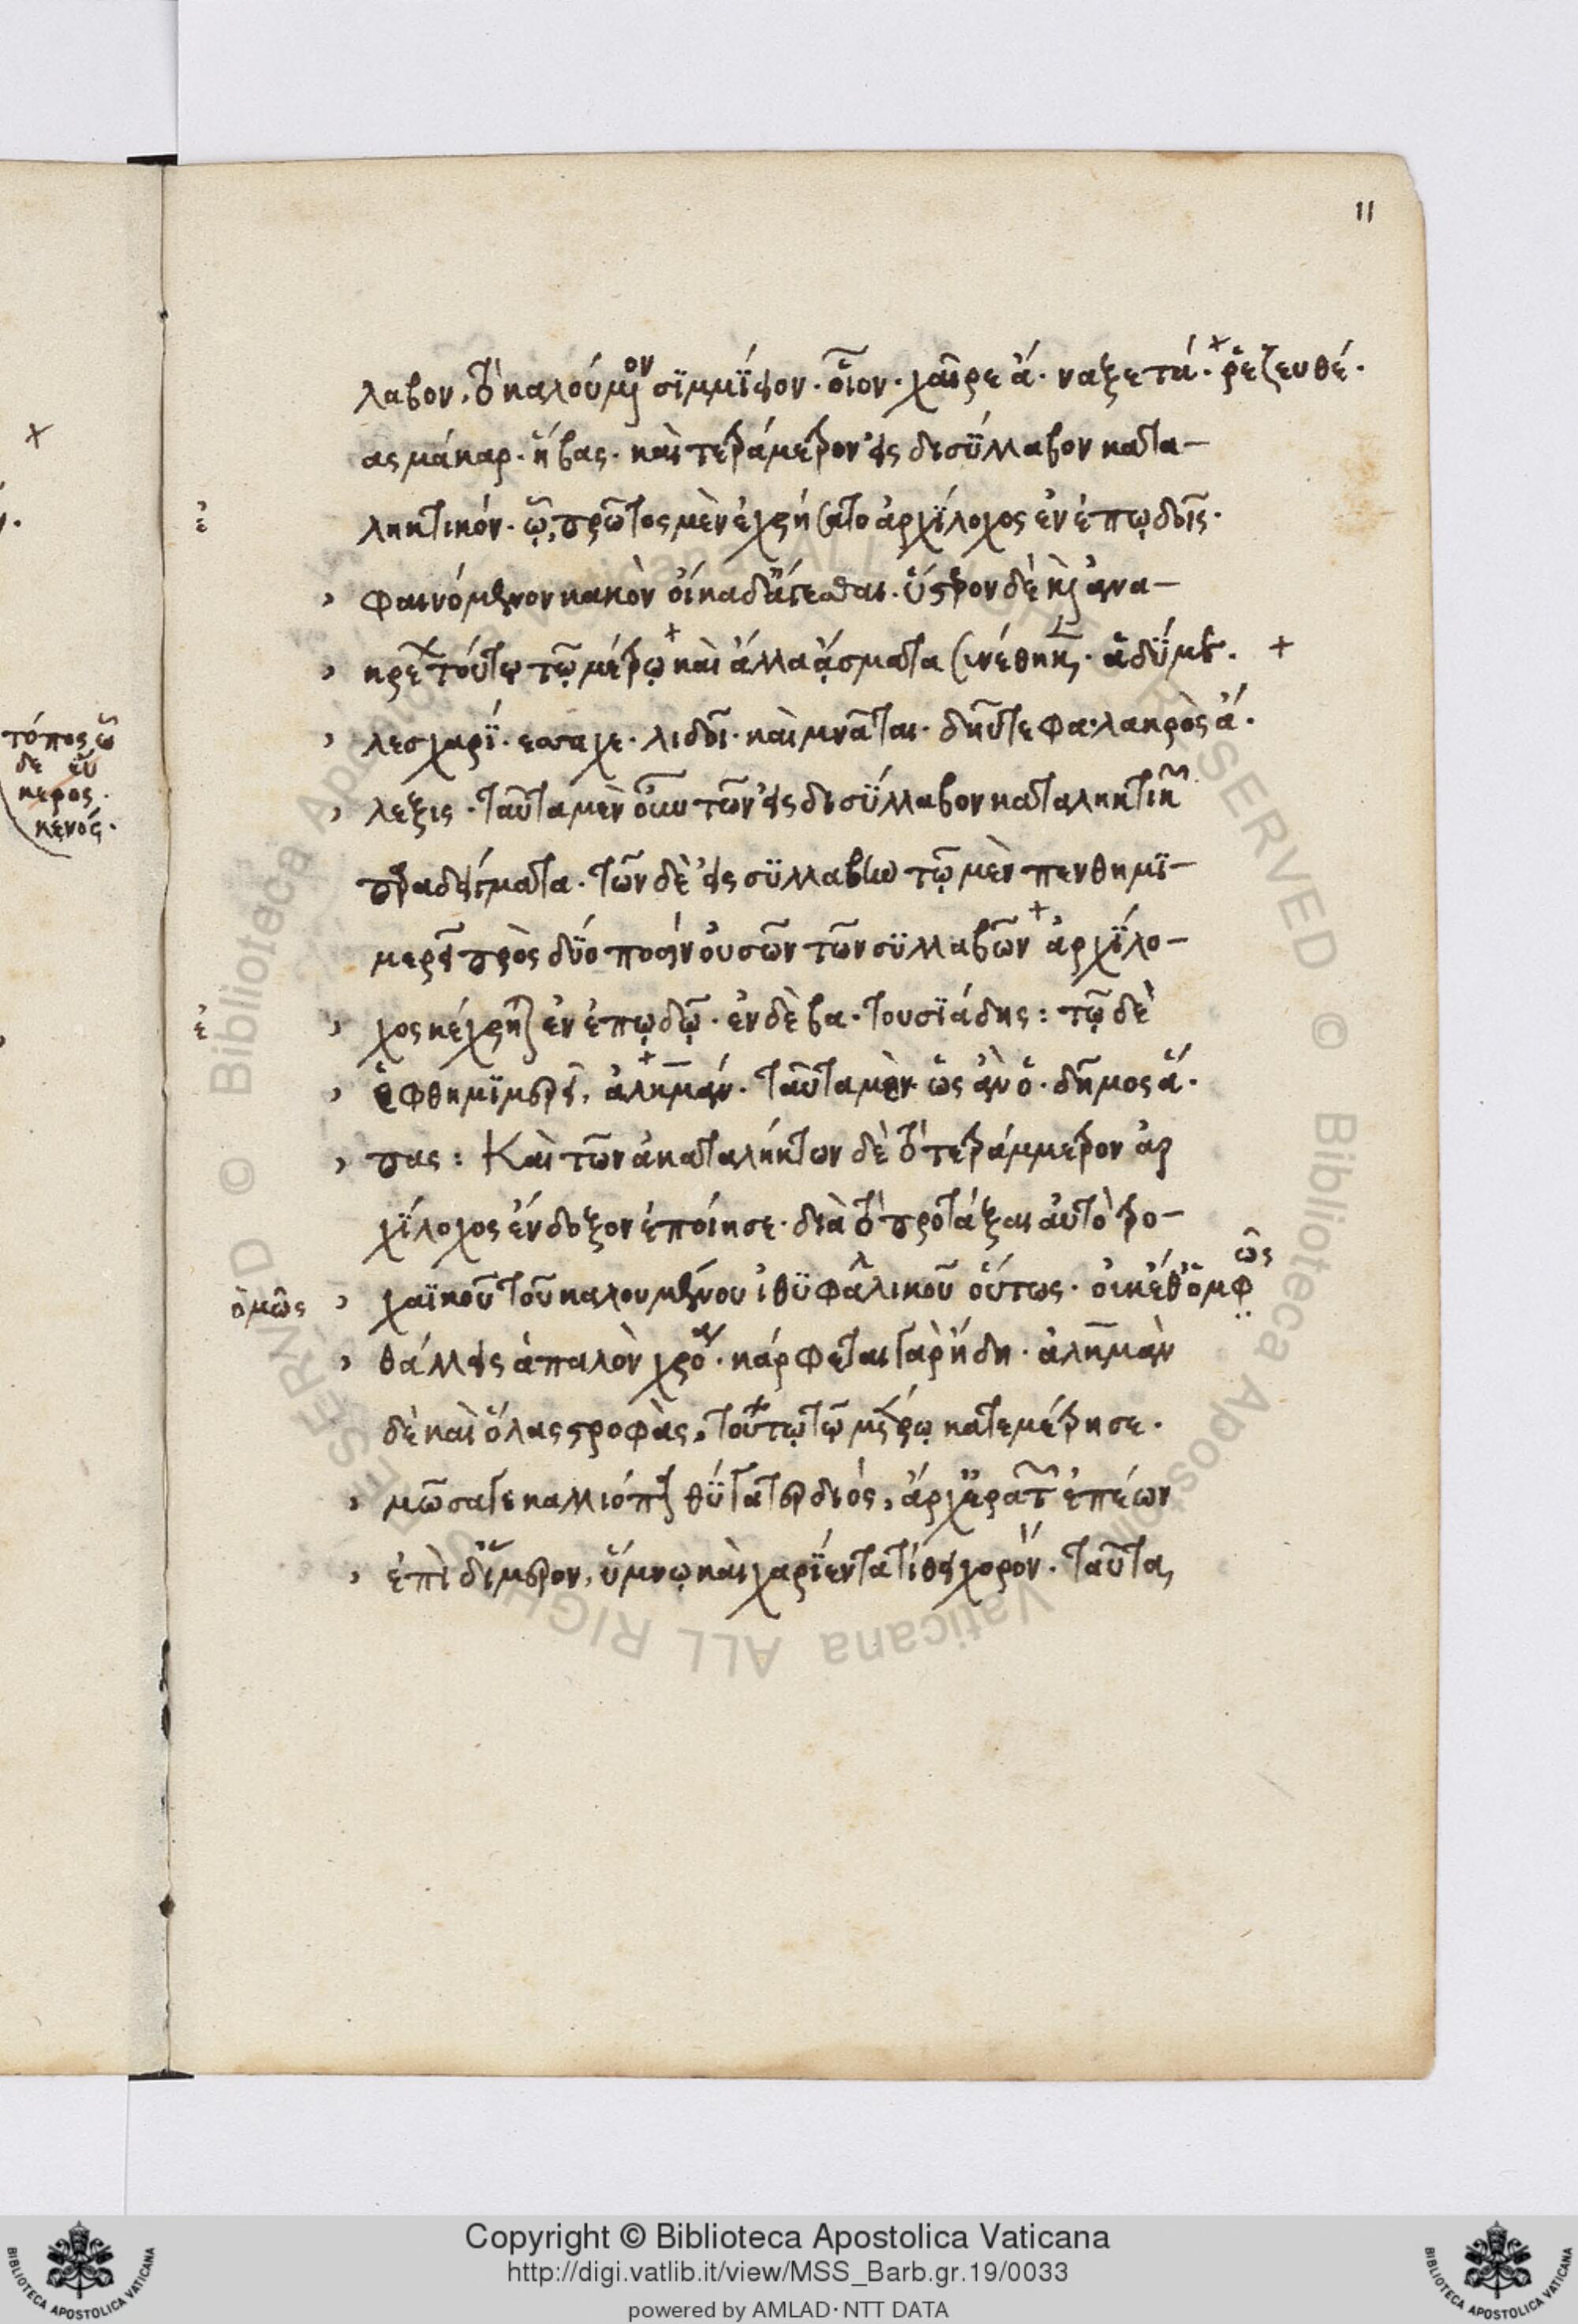 11
λαβον, τὸ καλούμενον σϊμμϊεῖον· οἷον· χαῖρε ἄ· ναξ ετα· ρε ζευθέ·
ας μάκαρ· ἥβας· καὶ τετράμετρον εἰς δισϋλλαβον κατα–
ληκτικόν· ᾧ, πρῶτος μὲν ἐχρήσατο ἀρχΐλοχος ἐν ἐπῳδοῖς·
φαινόμενον κακὸν οἴκαδ' ἄγεσθαι· ὕστερον δὲ καὶ ἀνα–
κρέων τούτῳ τῷ μέτρῳ καὶ ἄλλα ᾄσματα συνέθηκεν· ἁδϋμε·
λες χαρΐ· εσσα χε· λιδοῖ· καὶ μνᾶται· δηῦτε φα· λακρὸς ἀ·
λεξις· ταῦτα μὲν οὖν τῶν εἰς δισΰλλαβον καταληκτικῶν
παραδείματα· τῶν δὲ εἰς σϋλλαβὴν τῷ μὲν πενθημϊ–
μερεῖ πρὸς δύο ποσὶν οὐσῶν τῶν σϋλλαβῶν ἀρχΐλο–
χος κέχρηται ἐν ἐπῳδῷ· ἐν δὲ βα· τουσϊάδης: τῷ δὲ
ἑφθημϊμερεῖ, ἀλκμάν· ταῦτα μὲν ὡς ἂν ὁ· δῆμος ἅ·
πας: Καὶ τῶν ἀκαταλήκτων δὲ τὸ τετράμμετρον ἀρ
χΐλοχος ἔνδοξον ἐποίησε· διὰ τὸ προτάξαι αὐτὸ τρο–
χαϊκοῦ τοῦ καλουμένου ἰθϋφαλλικοῦ οὕτως· οἰκέθ' ὅμως
ὁμῶς
θάλλεις ἁπαλὸν χρόα· κάρφεται γὰρ ἤδη· ἀλκμὰν
δὲ καὶ ὅλας στροφὰς, τούτῳ τῷ μέτρῳ κατεμέτρησε·
μῶσα γε καλλιόπη θΰγατερ διός, ἄρχ' ἐρατῶν ἐπέων
ἐπὶ δΐμερον, ὕμνῳ καὶ χαρΐεντα τίθει χορόν· ταῦτα,
τόπος ὧ
δε εὐ
κερος·
κενός·
Copyright © Biblioteca Apostolica Vaticana
http://digi.vatlib.it/view/MSS_Barb.gr.19/0033
powered by AMLAD·NTT DATA